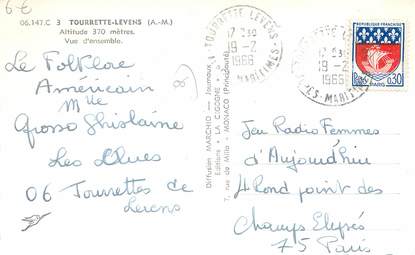 6€
06.147.C 3 TOURRETTE-LEVENS (A.-M.)
Altitude 370 mètres.
Vue d'ensemble.
Le Folklore
Américain
Mlle
Grosso Ghislaine
Les Olues
06 Tourrettes de
Levens
Diffusion MARCHIO — Journaux
Editions « LA CIGOGNE »
7, rue de Millo - MONACO (Principauté)
TOURRETTE LEVENS
17 H30
19-2
1966
MARITIMES
17 H30
19-2
1966
REPUBLIQUE FRANÇAISE
PARIS
0,30
Jeu Radio Femmes
d'Aujourd'hui
4 Rond point des
Champs Elysés
75 Paris